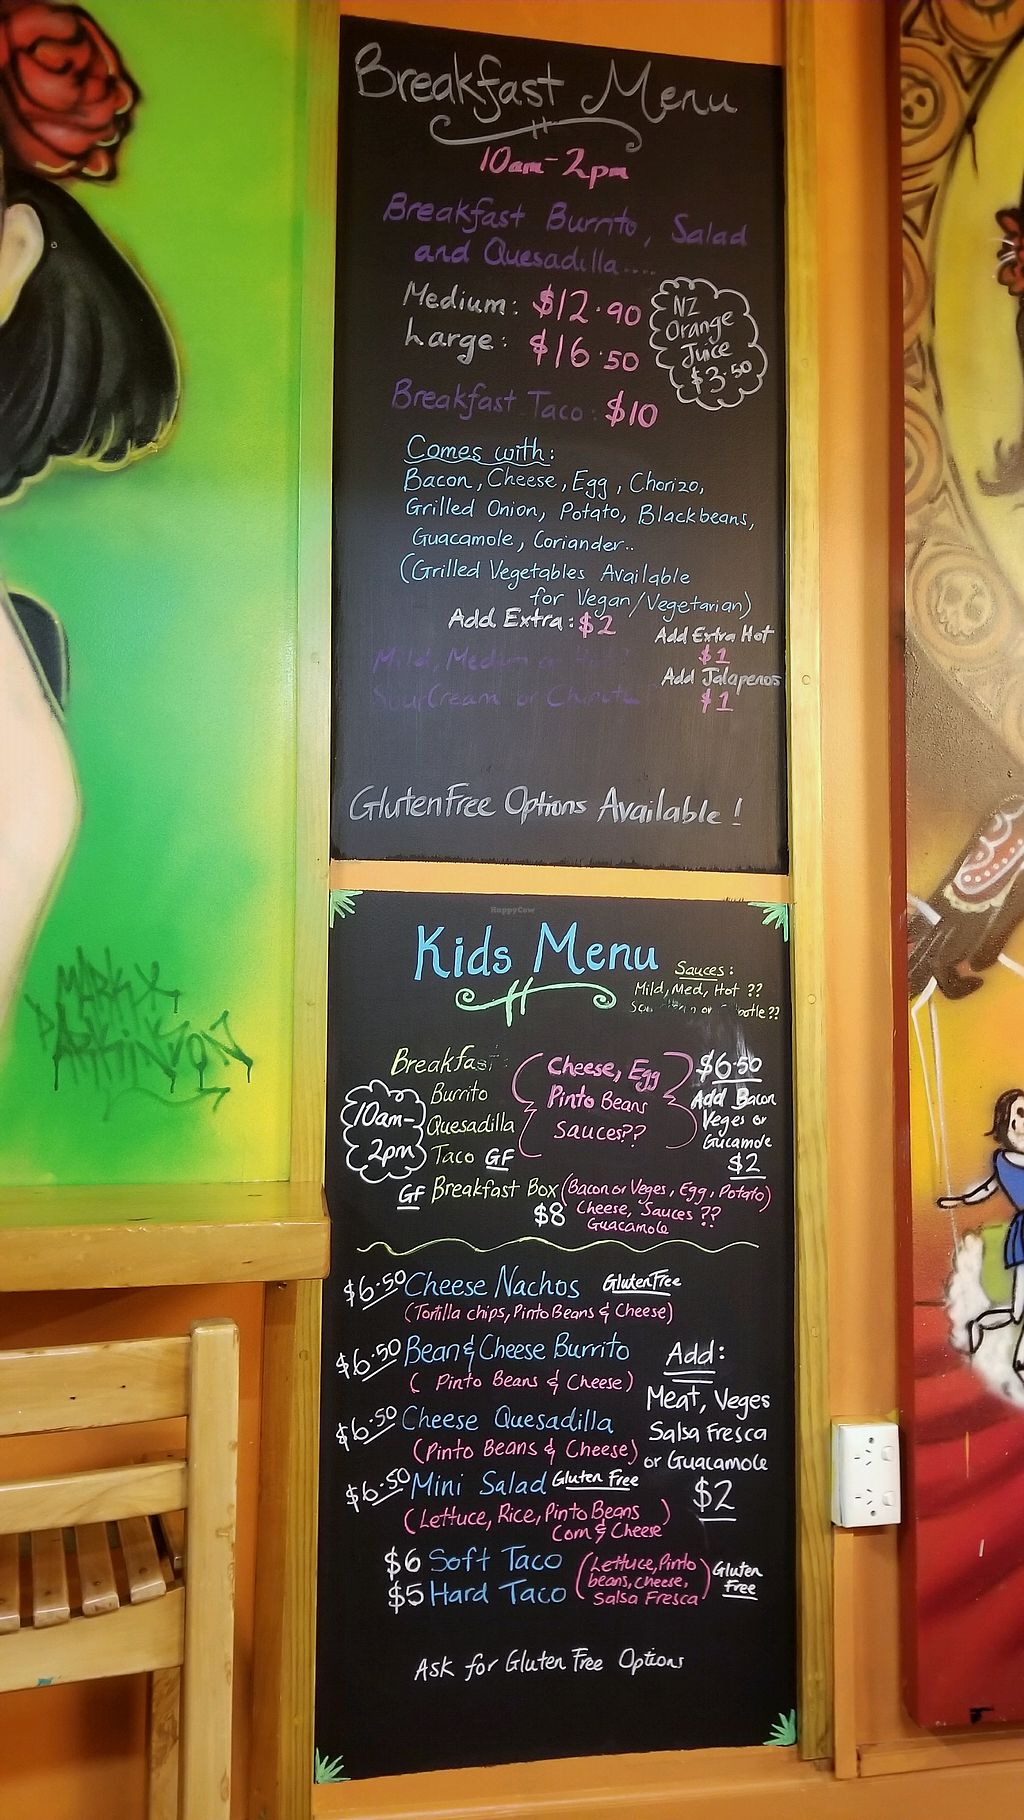 Breakfast Menu
10am-2pm
Breakfast Burrito, Salad
and Quesadilla....
Medium: $12.90
Large: $16.50
NZ
Orange
Juice
$3.50
Breakfast Taco: $10
Comes with:
Bacon, Cheese, Egg, Chorizo,
Grilled Onion, Potato, Blackbeans,
Guacamole, Coriander..
(Grilled Vegetables Available
for Vegan/Vegetarian)
Add Extra: $2
Add Extra Hot
$1
Add Jalapenos
$1
Mild, Medium or Hot?
Sour Cream or Chipotle
GlutenFree Options Available!
HappyCow
Kids Menu
Sauces:
Mild, Med, Hot ??
or
Breakfast:
Burrito
Quesadilla
Taco GF
10am-
2pm
Cheese, Egg
Pinto Beans
Sauces??
$6.50
Add Bacon
Veges or
Gucamole
$2
GF Breakfast Box (Bacon or Veges, Egg, Potato)
$8 Cheese, Sauces ??
Guacamole
$6.50 Cheese Nachos GlutenFree
(Tortilla chips, Pinto Beans & Cheese)
$6.50 Bean & Cheese Burrito
(Pinto Beans & Cheese)
$6.50 Cheese Quesadilla
(Pinto Beans & Cheese)
$6.50 Mini Salad Gluten Free
(Lettuce, Rice, Pinto Beans
Corn & Cheese)
Add:
Meat, Veges
Salsa Fresca
or Guacamole
$2
$6 Soft Taco
$5 Hard Taco
(Lettuce, Pinto
beans, cheese,
Salsa Fresca)
Gluten
Free
Ask for Gluten Free Options
MARK X
PARKINSON